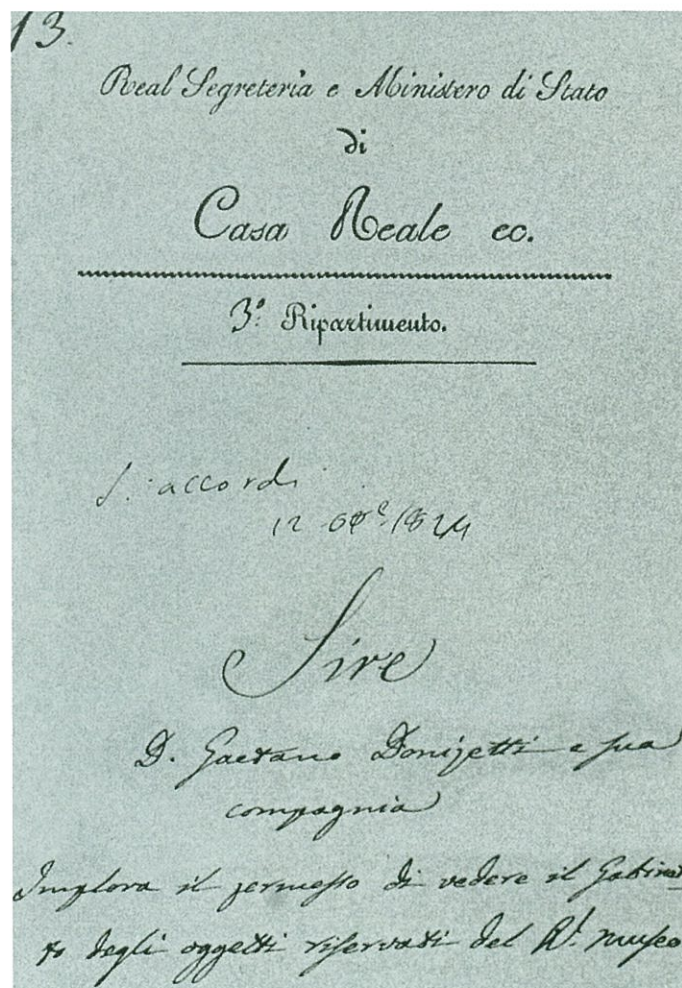 13.
Real Segreteria e Ministero di Stato
di
Casa Reale ec.
3.º Ripartimento.
S. accordi
12 1824
Sire
D. Gaetano Donizetti e sua
compagnia
Implora il permesso di vedere il Gabinet
to degli oggetti riservati del R.l museo